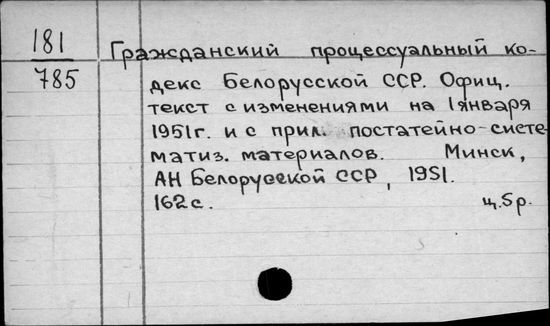 181
785
Гражданский процессуальный ко-
декс Белорусской ССР. Офиц.
текст с изменениями на 1 января
1951 г. и с прил. постатейно-систе-
матиз. материалов. Минск,
АН Белорусской ССР, 1951.
162 с. ц. 5 р.